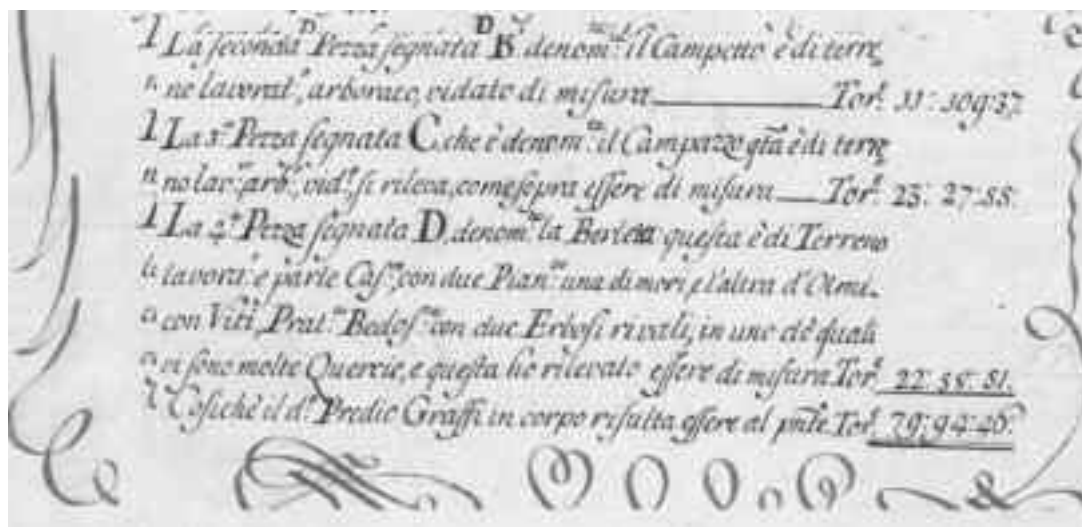 La seconda Pezza segnata B. denom.ta il Campetto è di terre
no lavorat.o, arborato, vidato di misura Tor.e 11: 109:37.
La 3.a Pezza segnata C. che è denom.ta il Campazzo qta è di terre
no lav.o arb.o, vid.o, si rileva, come sopra essere di misura Tor.e 23: 27:55.
La 4.a Pezza segnata D. denom.ta la questa è di Terreno
lavora.o e parte con due Pian.re una di mori, e l'altra d'Olmi
con Viti, Prat.o con due Erbosi rivali, in uno de quali
vi sono molte Quercie, e questa ho rilevato essere di misura Tor.e 22: 55: 81.
Cosichè il d.o Predio Graffi in corpo risulta essere al pnte Tor.e 79: 94: 26.